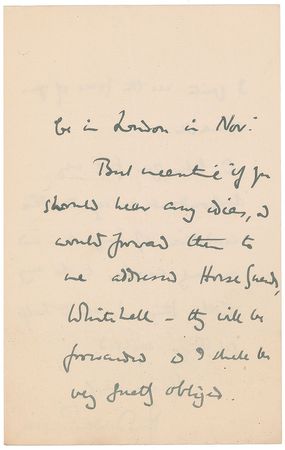 be in London in Nov:
But meantime if you
should hear any idea, &
would forward them to
me addressed Horse Guards,
Whitehall – they will be
forwarded & I shall be
very greatly obliged.